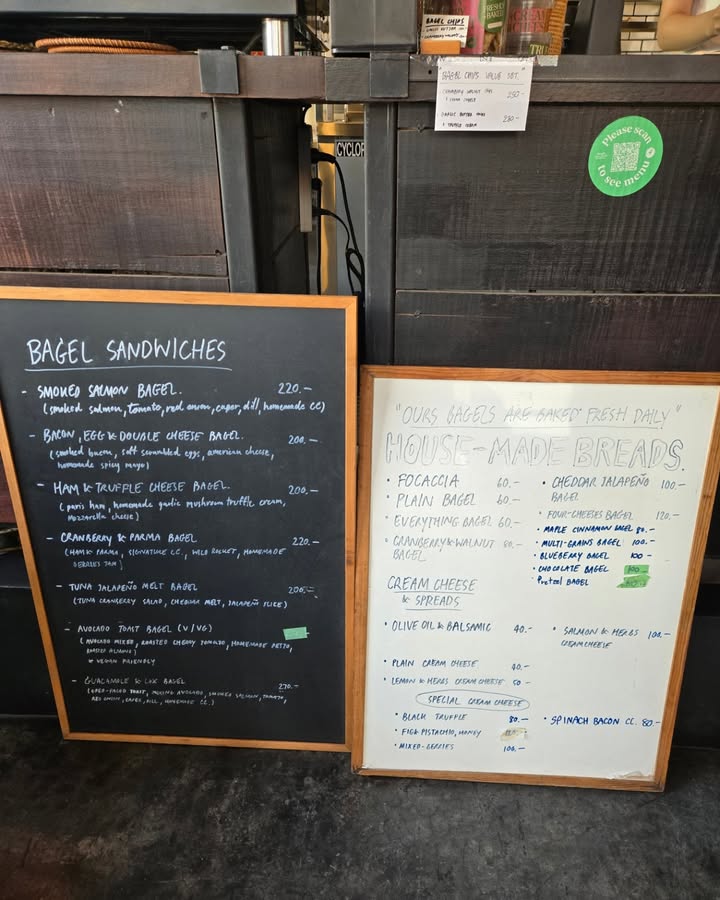 BAGEL CHIPS
BAGEL CHIPS VALUE SET.
230.-
Please scan
to see menu
CYCLOP
BAGEL SANDWICHES
- SMOKED SALMON BAGEL. 220.-
(smoked salmon, tomato, red onion, caper, dill, homemade CC)
- BACON, EGG & DOUBLE CHEESE BAGEL. 200.-
(smoked bacon, soft scrambled eggs, american cheese,
homemade spicy mayo)
- HAM & TRUFFLE CHEESE BAGEL. 200.-
(paris ham, homemade garlic mushroom truffle cream,
mozzarella cheese)
- CRANBERRY & PARMA BAGEL 220.-
(HAM & PARMA, SIGNATURE C.C., WILD ROCKET, HOMEMADE
BERRIES JAM)
- TUNA JALAPEÑO MELT BAGEL 200.-
(TUNA CRANBERRY SALAD, CHEDDAR MELT, JALAPEÑO SLICE)
- AVOCADO TOAST BAGEL (V/VG)
(AVOCADO MIXED, ROASTED CHERRY TOMATO, HOMEMADE PESTO,
ROASTED ALMOND)
* VEGAN FRIENDLY
- GUACAMOLE & LOX BAGEL 270.-
(OPEN-FACED TOAST, AVOCADO, SMOKED SALMON, TOMATO,
RED ONION, CAPER, DILL, HOMEMADE CC.)
"OURS BAGELS ARE BAKED FRESH DAILY"
HOUSE-MADE BREADS.
• FOCACCIA 60.-
• PLAIN BAGEL 60.-
• EVERYTHING BAGEL 60.-
• CRANBERRY & WALNUT 80.-
BAGEL
• CHEDDAR JALAPEÑO 100.-
BAGEL
• FOUR-CHEESES BAGEL 120.-
• MAPLE CINNAMON BAGEL 80.-
• MULTI-GRAINS BAGEL 100.-
• BLUEBERRY BAGEL 100-
• CHOCOLATE BAGEL 100.-
• Pretzel BAGEL
CREAM CHEESE
& SPREADS
• OLIVE OIL & BALSAMIC 40.-
• SALMON & HERBS 100.-
CREAM CHEESE
• PLAIN CREAM CHEESE 40.-
• LEMON & HERBS CREAM CHEESE 50.-
SPECIAL CREAM CHEESE
• BLACK TRUFFLE 80.-
• SPINACH BACON CC. 80.-
• FIG & PISTACHIO, HONEY
• MIXED-BERRIES 100.-